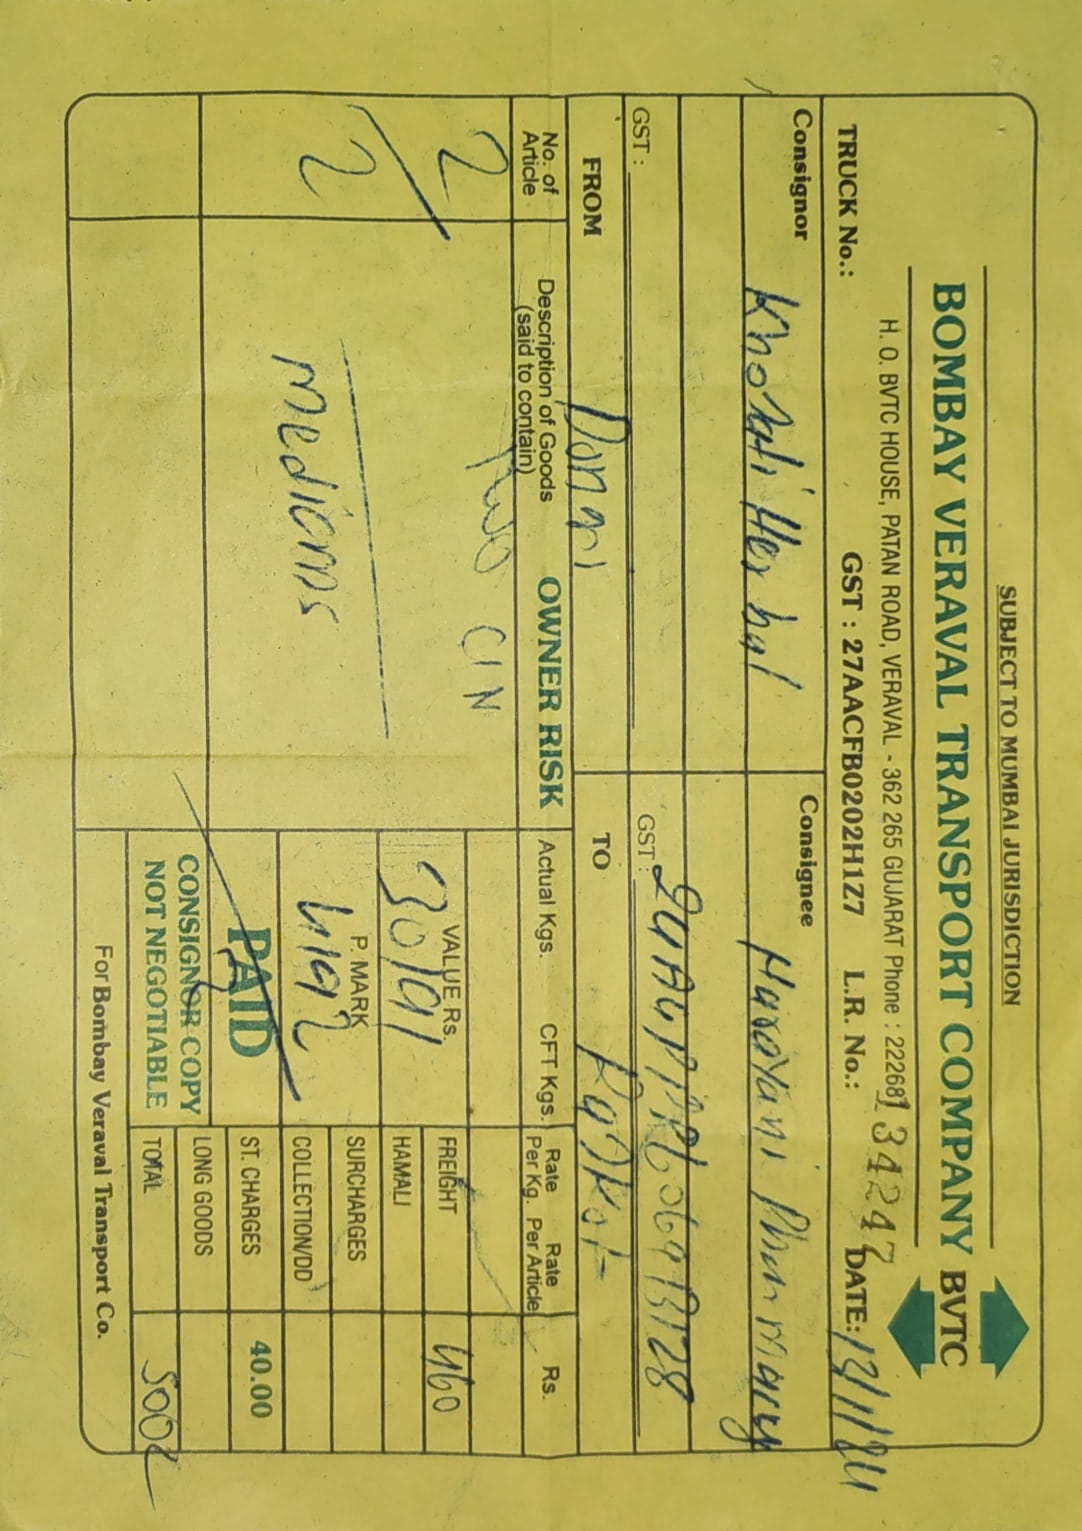 SUBJECT TO MUMBAI JURISDICTION
BOMBAY VERAVAL TRANSPORT COMPANY BVTC
H. O. BVTC HOUSE, PATAN ROAD, VERAVAL - 362 265 GUJARAT Phone : 222681
34247
TRUCK No.: GST : 27AACFB0202H1Z7 L.R. No.: DATE:
Consignor Consignee
Herbal
GST : GST :
FROM Dongri TO Rajkot
No. of Article Description of Goods (said to contain) OWNER RISK Actual Kgs. CFT Kgs. Rate Per Kg. Rate Per Article Rs.
2 Two C/N
FREIGHT 460
VALUE Rs. 30191
HAMALI
2
P. MARK
SURCHARGES
4192
COLLECTION/DD
PAID ST. CHARGES 40.00
CONSIGNOR COPY LONG GOODS
NOT NEGOTIABLE TOTAL 500
For Bombay Veraval Transport Co.